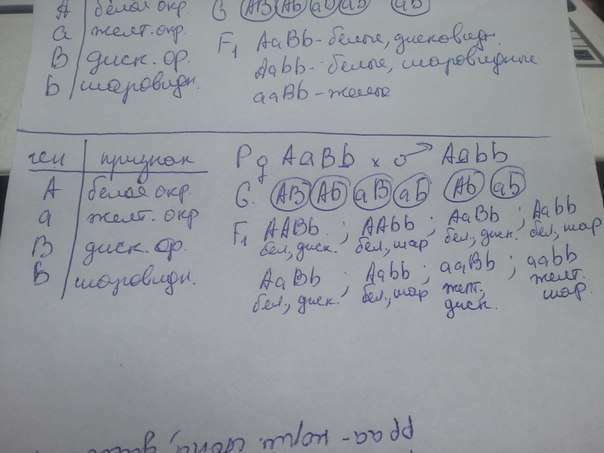 A белая окр
a желт. окр.
B диск. ф.
b шаровидн.
G. AB Ab aB ab ab
F1 AaBb - белые, дисковидн.
Aabb - белые, шаровидные
aaBb - желтые
ген признак
A белая окр.
a желт. окр
B диск. ф.
B шаровидн.
P ♀ AaBb x ♂ Aabb
G. AB Ab aB ab Ab ab
F1 AABb ; AAbb ; AaBb ; Aabb
бел, диск. бел., шар бел., диск. бел, шар
AaBb ; Aabb ; aaBb ; aabb
бел., диск. бел., шар желт., диск. желт. шар.